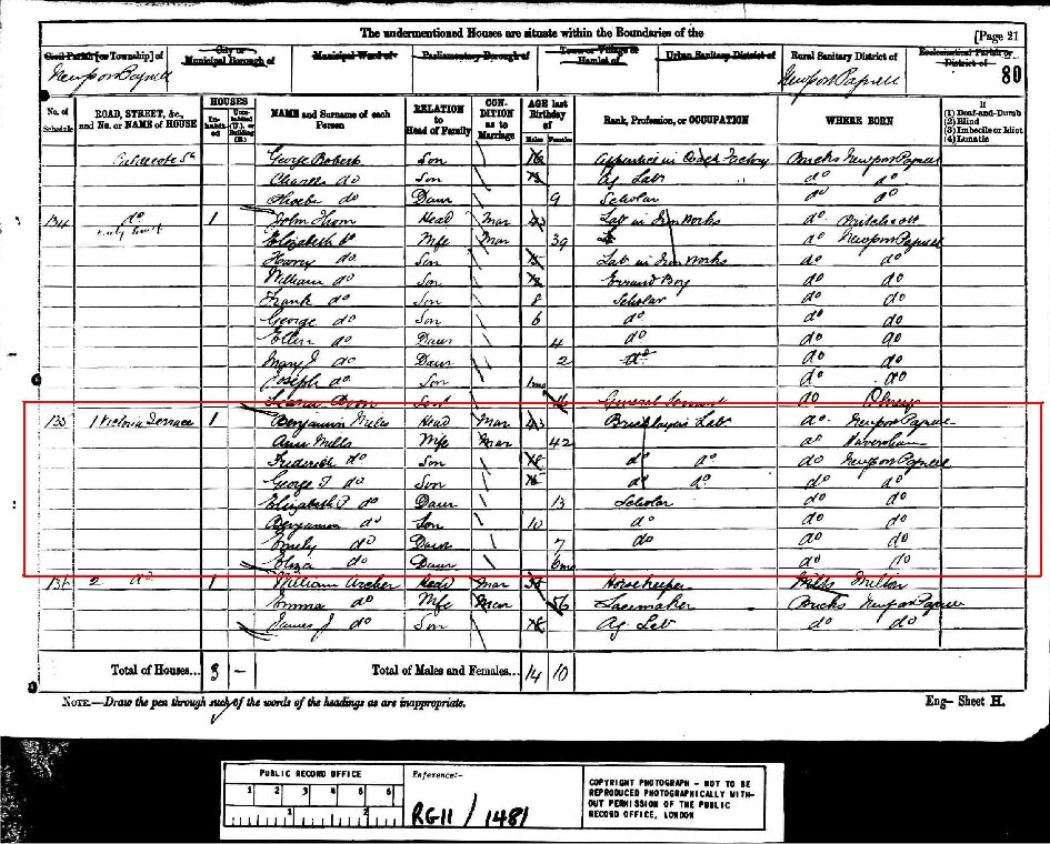 The undermentioned Houses are situate within the Boundaries of the
[Page 21
Civil Parish [or Township] of
City or Municipal Borough of
Municipal Ward of
Parliamentary Borough of
Town or Village or Hamlet of
Urban Sanitary District of
Rural Sanitary District of
Ecclesiastical Parish or District of
Newport Pagnell
Newport Pagnell
80
No. of Schedule
ROAD, STREET, &c., and No. or NAME of HOUSE
HOUSES
Inhabited
Uninhabited (U.), or Building (B.)
NAME and Surname of each Person
RELATION to Head of Family
CONDITION as to Marriage
AGE last Birthday of
Males
Females
Rank, Profession, or OCCUPATION
WHERE BORN
If
(1) Deaf-and-Dumb
(2) Blind
(3) Imbecile or Idiot
(4) Lunatic
George Roberts Son 16 Apprentice in Coach Factory Bucks Newport Pagnell
Charles do Son 13 Ag Lab do do
Phoebe do Daur 9 Scholar do do
134 do 1 John Head Mar 43 Lab in Iron Works do
Elizabeth do Wife Mar 39 do Newport Pagnell
Harry do Son 15 Lab in Iron Works do do
William do Son Errand Boy do do
Frank do Son 8 Scholar do do
George do Son 6 do do do
Ellen do Daur 4 do do do
Mary J do Daur 2 do do do
Joseph do Son 1mo do do
Servt 16 General Servant do Olney
135 1 Victoria Terrace 1 Benjamin Mills Head Mar 43 Bricklayers Lab do Newport Pagnell
Ann Mills Wife Mar 42 do Haversham
Frederick do Son 18 do do do Newport Pagnell
George do Son do do do do
Elizabeth do Daur 13 Scholar do do
Benjamin do Son 10 do do do
Emily do Daur 7 do do do
Eliza do Daur 6mo do do
136 2 do 1 William Archer Head Mar Horsekeeper Milton
Emma do Wife Mar 56 Lacemaker Bucks Newport Pagnell
James J do Son 18 Ag Lab do do
Total of Houses... 3 –
Total of Males and Females... 14 10
NOTE.—Draw the pen through such of the words of the headings as are inappropriate.
Eng– Sheet H.
PUBLIC RECORD OFFICE
1 2 3 4 5 6
1 2
Reference:-
RG11 / 1481
COPYRIGHT PHOTOGRAPH - NOT TO BE
REPRODUCED PHOTOGRAPHICALLY WITH-
OUT PERMISSION OF THE PUBLIC
RECORD OFFICE, LONDON